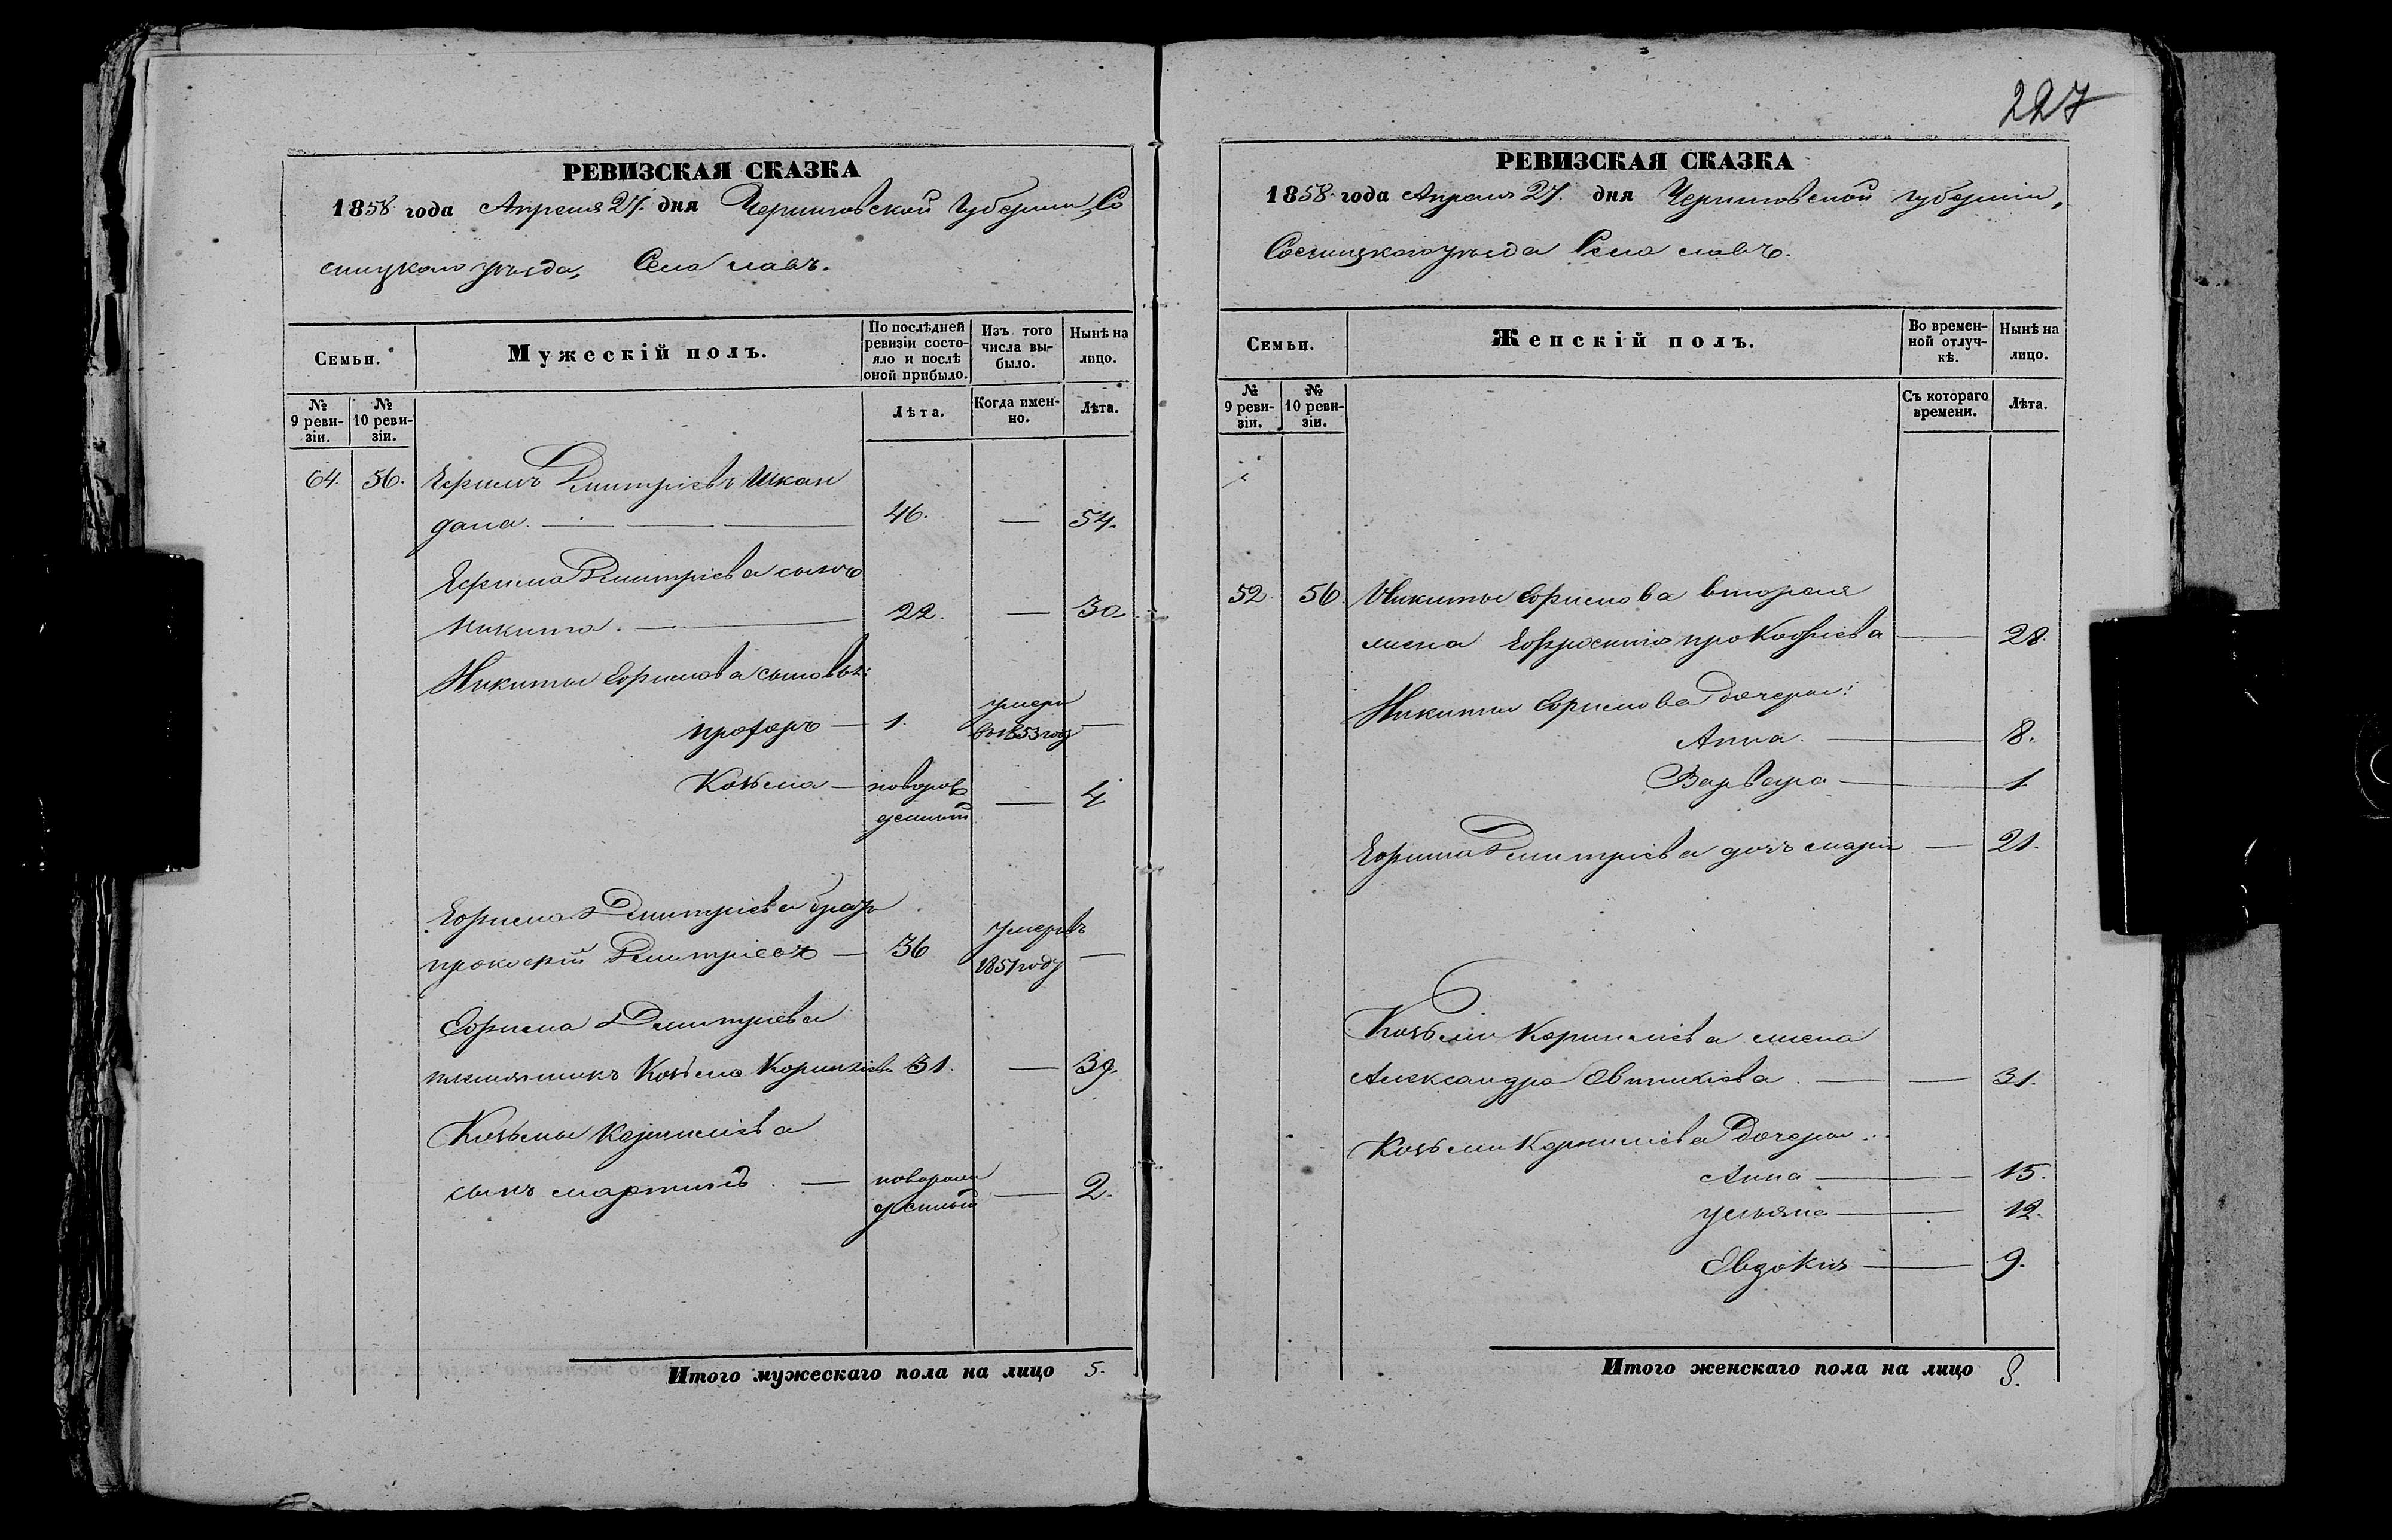 227
РЕВИЗСКАЯ СКАЗКА
1858 года Апреля 27. дня Черниговской Губернии, Со
сницкаго уезда, Села
По послѣдней ревизіи состояло и послѣ оной прибыло.
Изъ того числа выбыло.
Нынѣ на лицо.
Семьи. Мужескій полъ.
№ 9 ревизіи. № 10 ревизіи. Лѣта. Когда именно. Лѣта.
64. 56. Ефимъ Дмитріевъ Шкан
дала. — 46. — 54.
Ефима Дмитріева сынъ
Никита. — 22. — 30.
Никиты Ефимова сыновья:
прохоръ — 1. умеръ въ 1853 году —
Козьма — новорожденный — 4
Ефима Дмитріева братъ
прокофій Дмитріевъ — 36 умеръ въ 1851 году —
Ефима Дмитріева
племянникъ Козьма Корниліевъ 31. — 39.
Козьмы Корниліева
сынъ мартинъ. — новорожденный — 2.
Итого мужескаго пола на лицо 5.
РЕВИЗСКАЯ СКАЗКА
1858 года Апреля 27. дня Черниговской губерніи,
Сосницкаго уезда Села
Семьи. Женскій полъ. Во временной отлучкѣ. Нынѣ на лицо.
№ 9 ревизіи. № 10 ревизіи. Съ котораго времени. Лѣта.
52. 56. Никиты Ефимова вторая
жена Ефросинія прокофіева — 28.
Никиты Ефимова дочери:
Анна. — 8.
Варвара — 1
Ефима Дмитріева дочь марія — 21.
Козьми Корниліева жена
Александра Евтихіева. — — 31.
Козьми Корниліева дочери:
Анна — 15.
ульяна — 12.
Евдокия — 9.
Итого женскаго пола на лицо 8.